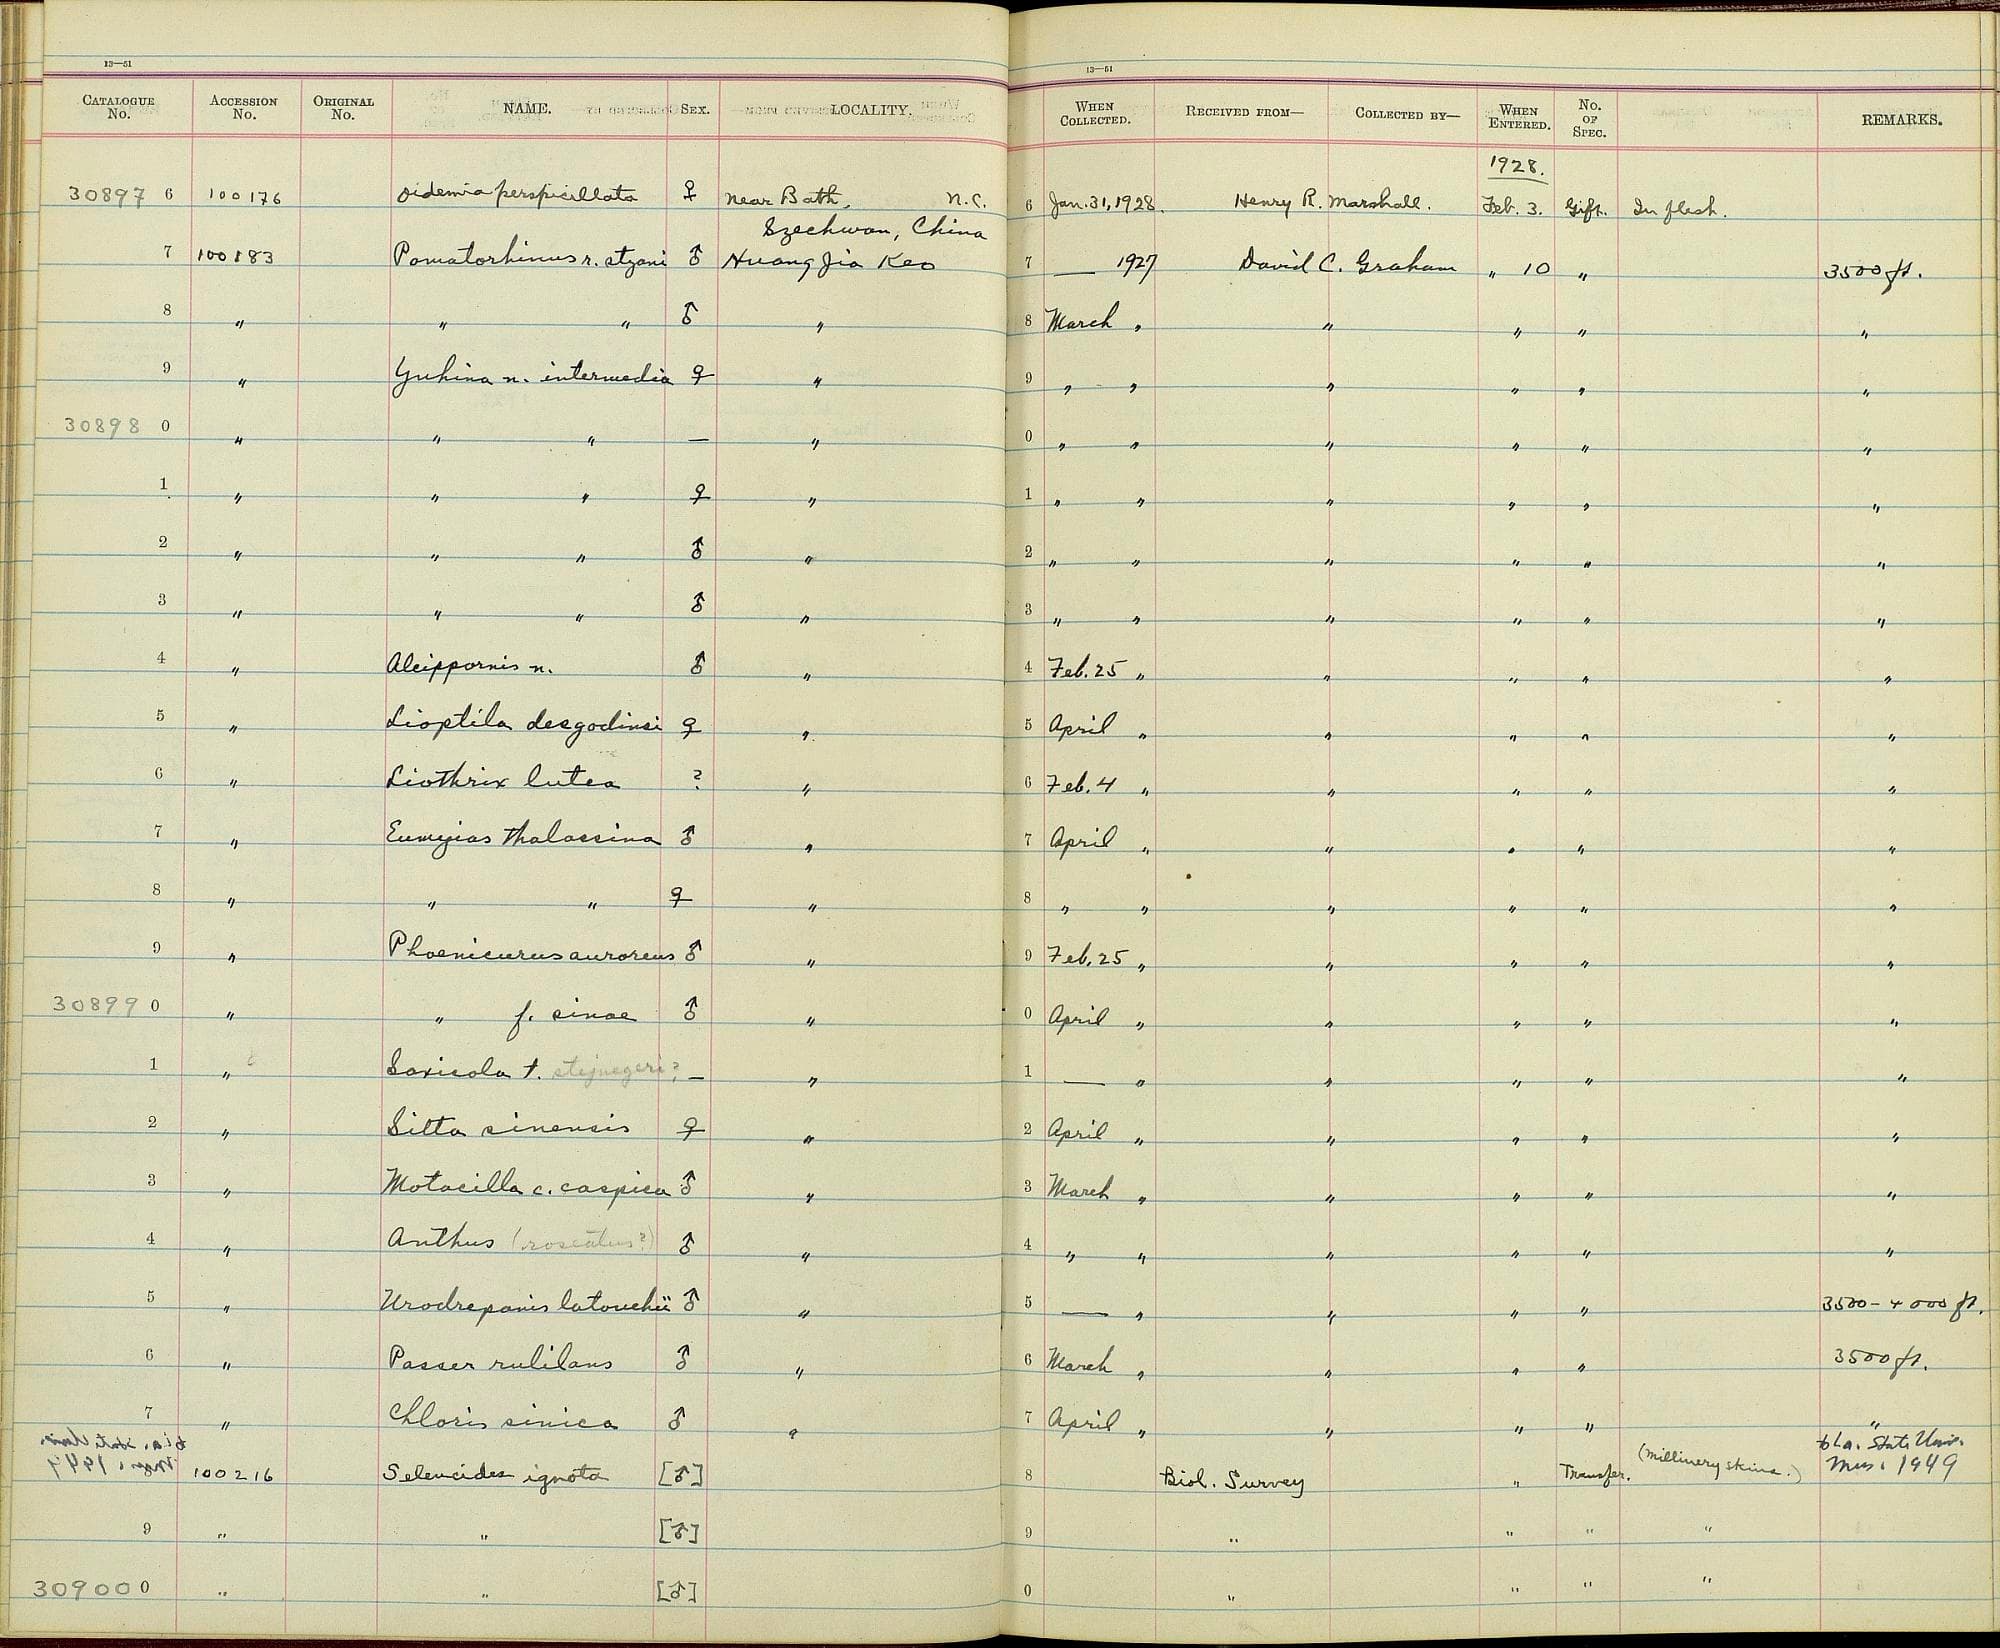 13—51
CATALOGUE No. ACCESSION No. ORIGINAL No. NAME. SEX. LOCALITY.
30897 6 100176 Oidemia perspicillata ♀ near Bath, N.C.
Szechwan, China
7 100183 Pomatorhinus r. styani ♂ Huang Jia Keo
8 " " " ♂ "
9 " Yuhina n. intermedia ♀ "
30898 0 " " " — "
1 " " " ♀ "
2 " " " ♂ "
3 " " " ♂ "
4 " Alcippornis n. ♂ "
5 " Lioptila desgodinsi ♀ "
6 " Liothrix lutea ? "
7 " Eumyias thalassina ♂ "
8 " " " ♀ "
9 " Phoenicurus auroreus ♂ "
30899 0 " " f. sinae ♂ "
1 " Saxicola t. stejnegeri? — "
2 " Sitta sinensis ♀ "
3 " Motacilla c. caspica ♂ "
4 " Anthus (roseatus?) ♂ "
5 " Urodrepanis latouchii ♂ "
6 " Passer rutilans ♂ "
7 " Chloris sinica ♂ "
100216 Seleucides ignota [♂]
9 " " [♂]
30900 0 " " [♂]
13—51
WHEN COLLECTED. RECEIVED FROM— COLLECTED BY— WHEN ENTERED. No. OF SPEC. REMARKS.
1928.
6 Jan. 31, 1928. Henry R. Marshall. Feb. 3. Gift. In flesh.
7 — 1927 David C. Graham " 10 " 3500 ft.
8 March " " " " "
9 " " " " " "
0 " " " " " "
1 " " " " " "
2 " " " " " "
3 " " " " " "
4 Feb. 25 " " " " "
5 April " " " " "
6 Feb. 4 " " " " "
7 April " " " " "
8 " " " " " "
9 Feb. 25 " " " " "
0 April " " " " "
1 — " " " " "
2 April " " " " "
3 March " " " " "
4 " " " " " "
5 — " " " " 3500 – 4000 ft.
6 March " " " " 3500 ft.
7 April " " " " "
8 Biol. Survey " Transfer. (Millinery skins.) to La. State Univ.
Mus. 1949
9 " " " "
0 " " " "